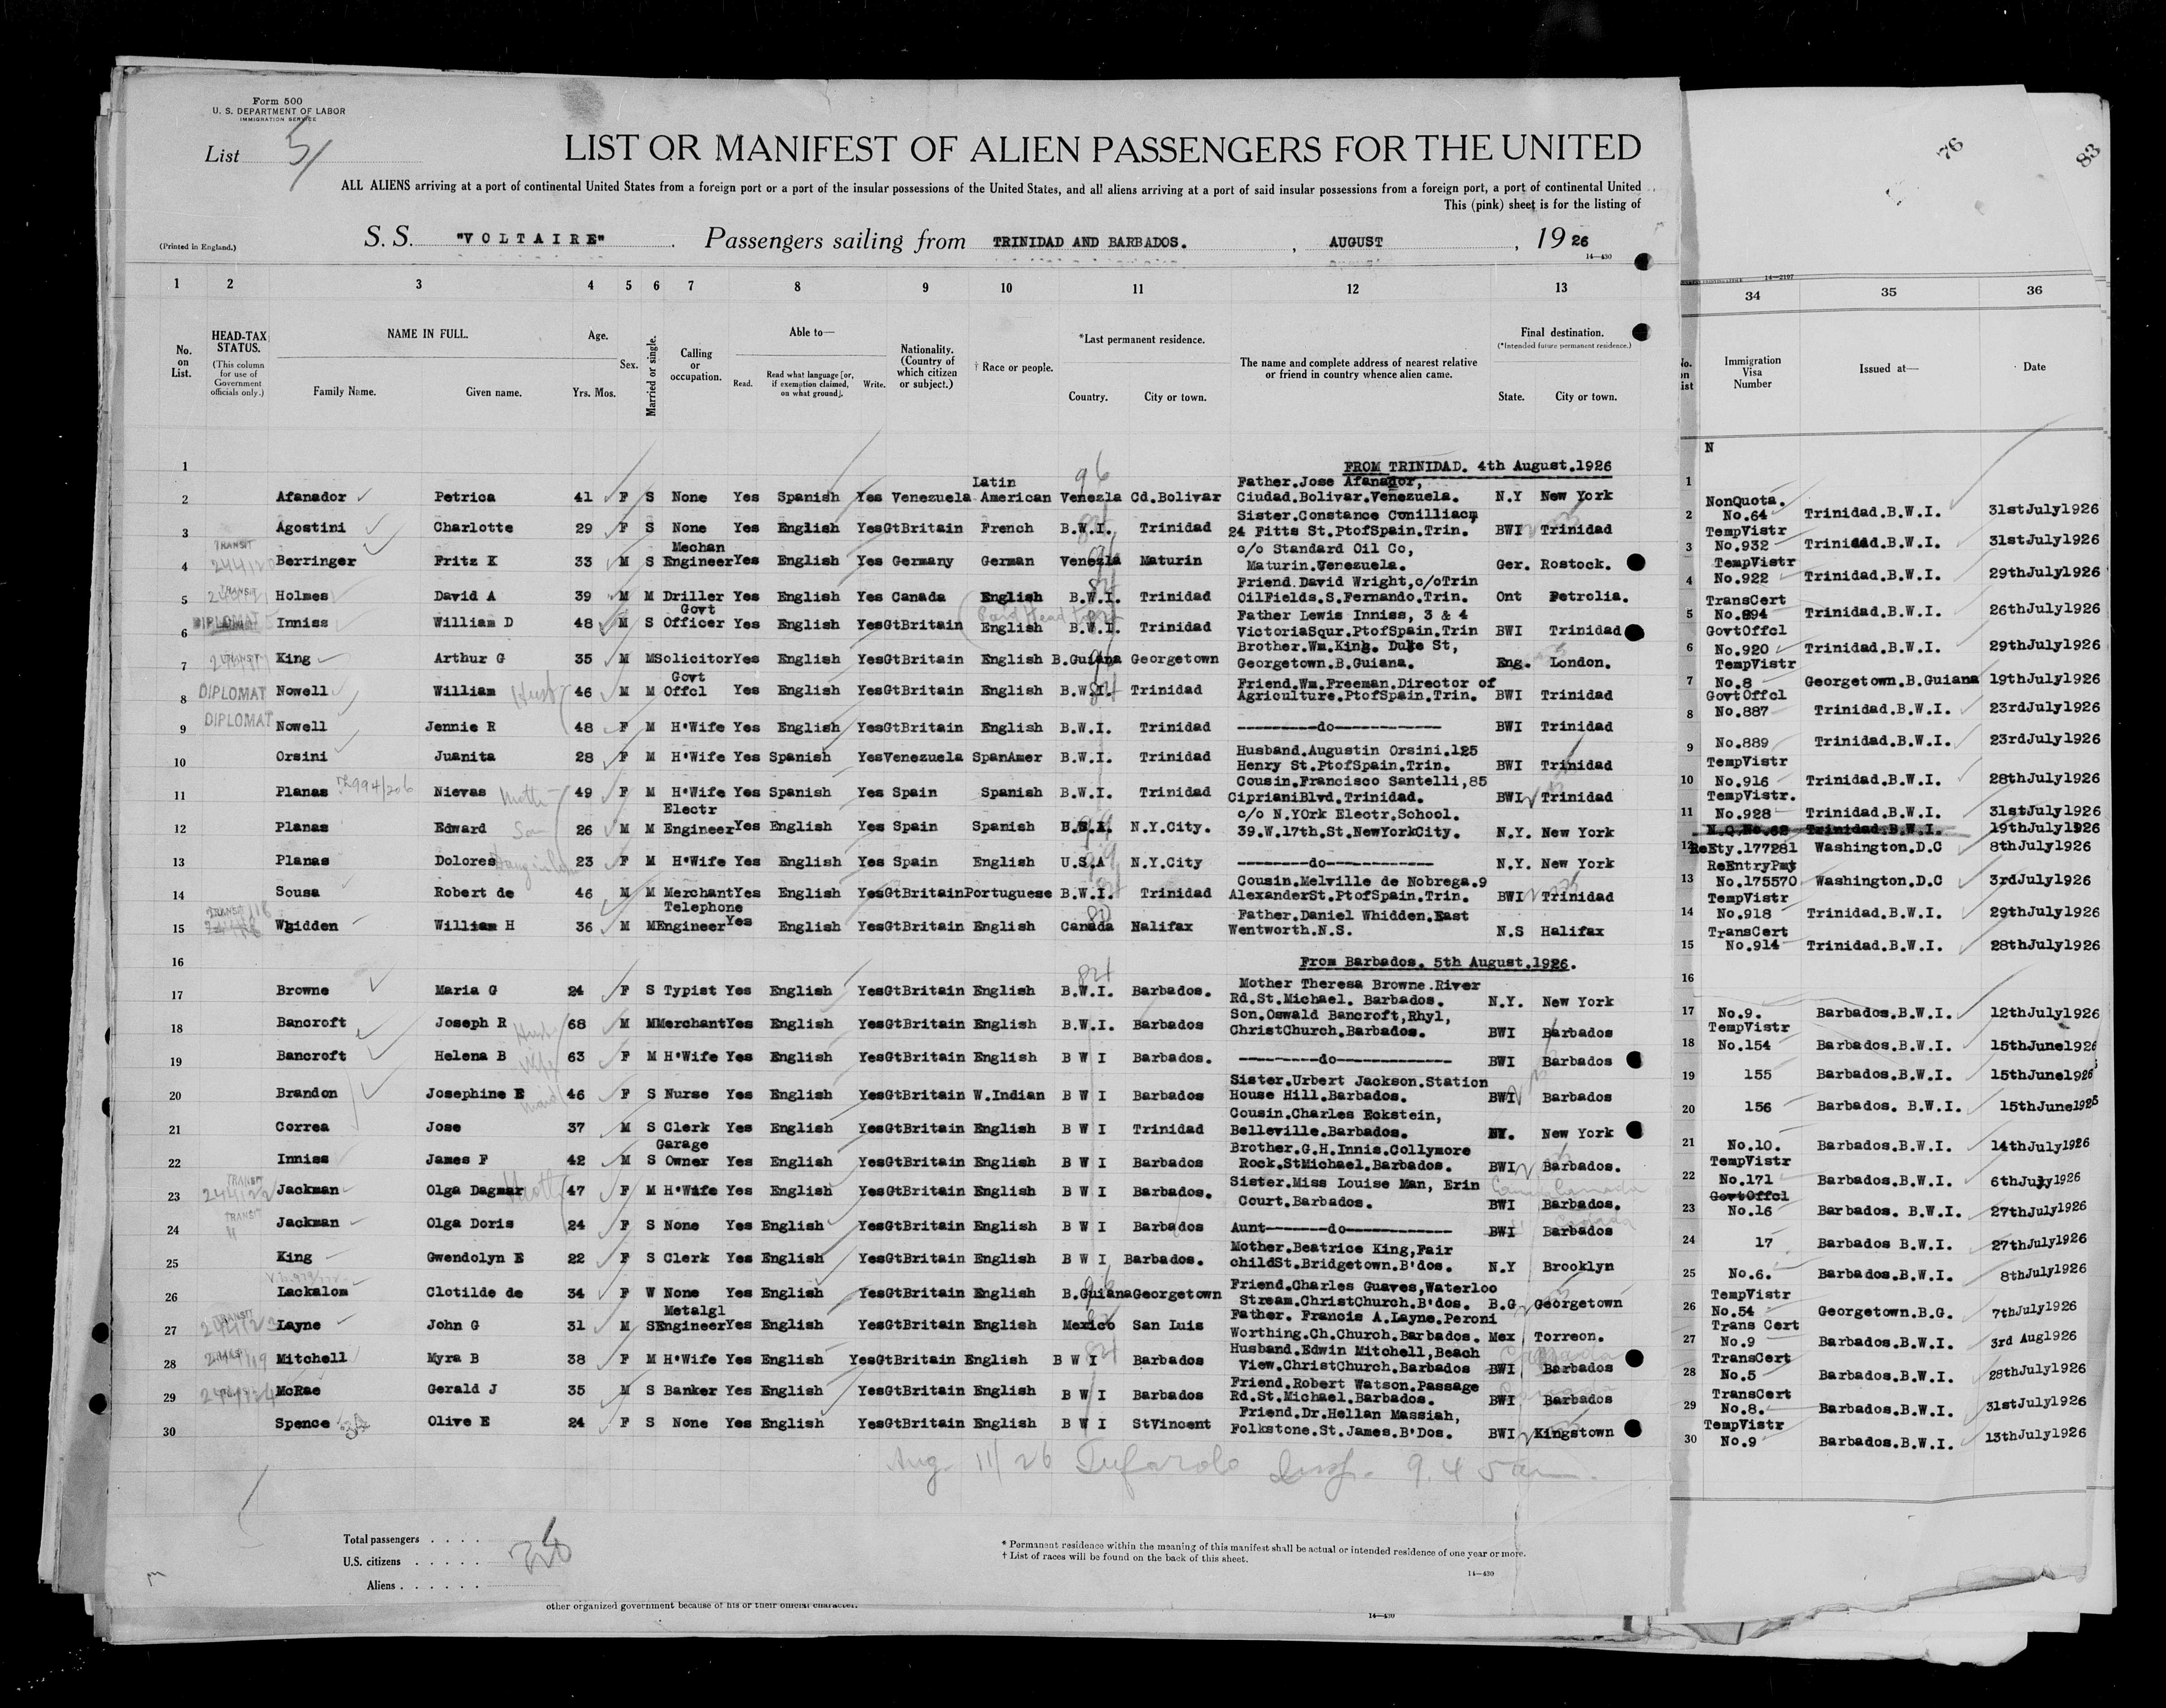 Form 500
U. S. DEPARTMENT OF LABOR
IMMIGRATION SERVICE
List 5
LIST OR MANIFEST OF ALIEN PASSENGERS FOR THE UNITED
ALL ALIENS arriving at a port of continental United States from a foreign port or a port of the insular possessions of the United States, and all aliens arriving at a port of said insular possessions from a foreign port, a port of continental United
This (pink) sheet is for the listing of
(Printed in England.)
S. S. "VOLTAIRE" . Passengers sailing from TRINIDAD AND BARBADOS. , AUGUST , 19 26
14—430
76
83
14—2197
1 2 3 4 5 6 7 8 9 10 11 12 13 34 35 36
No. on List.
HEAD-TAX STATUS.
(This column for use of Government officials only.)
NAME IN FULL.
Family Name. Given name.
Age.
Yrs. Mos.
Sex.
Married or single.
Calling or occupation.
Able to—
Read. Read what language [or, if exemption claimed, on what ground]. Write.
Nationality. (Country of which citizen or subject.)
† Race or people.
*Last permanent residence.
Country. City or town.
The name and complete address of nearest relative or friend in country whence alien came.
Final destination.
(*Intended future permanent residence.)
State. City or town.
Immigration Visa Number
Issued at—
Date
N
1 FROM TRINIDAD. 4th August.1926 1
96
2 Afanador Petrica 41 F S None Yes Spanish Yes Venezuela Latin American Venezla Cd.Bolivar Father.Jose Afanador, Ciudad.Bolivar.Venezuela. N.Y New York 2 NonQuota. No.64 Trinidad.B.W.I. 31stJuly1926
3 Agostini Charlotte 29 F S None Yes English YesGtBritain French B.W.I. Trinidad Sister.Constance Cunilliacm 24 Fitts St.PtofSpain.Trin. BWI Trinidad 3 TempVistr No.932 Trinidad.B.W.I. 31stJuly1926
TRANSIT
4 Berringer Fritz K 33 M S Mechan Engineer Yes English Yes Germany German Venezla Maturin c/o Standard Oil Co, Maturin.Venezuela. Ger. Rostock. 4 TempVistr No.922 Trinidad.B.W.I. 29thJuly1926
TRANSIT
5 Holmes David A 39 M M Driller Yes English Yes Canada English B.W.I. Trinidad Friend.David Wright,c/oTrin OilFields.S.Fernando.Trin. Ont Petrolia. 5 TransCert No.894 Trinidad.B.W.I. 26thJuly1926
Paid Head Tax
DIPLOMAT
6 Inniss William D 48 M S Govt Officer Yes English YesGtBritain English B.W.I. Trinidad Father Lewis Inniss, 3 & 4 VictoriaSqur.PtofSpain.Trin BWI Trinidad 6 GovtOffcl No.920 Trinidad.B.W.I. 29thJuly1926
TRANSIT
7 King Arthur G 35 M MSolicitorYes English YesGtBritain English B.Guiana Georgetown Brother.Wm.King. Duke St, Georgetown.B.Guiana. Eng. London. 7 TempVistr No.8 Georgetown.B.Guiana 19thJuly1926
DIPLOMAT
8 Nowell William Husb 46 M M Govt Offcl Yes English YesGtBritain English B.W.I. Trinidad Friend.Wm.Freeman.Director of Agriculture.PtofSpain.Trin. BWI Trinidad 8 GovtOffcl No.887 Trinidad.B.W.I. 23rdJuly1926
DIPLOMAT
9 Nowell Jennie R 48 F M H'Wife Yes English YesGtBritain English B.W.I. Trinidad ---------do------------ BWI Trinidad 9 No.889 Trinidad.B.W.I. 23rdJuly1926
10 Orsini Juanita 28 F M H'Wife Yes Spanish YesVenezuela SpanAmer B.W.I. Trinidad Husband.Augustin Orsini.125 Henry St.PtofSpain.Trin. BWI Trinidad 10 TempVistr No.916 Trinidad.B.W.I. 28thJuly1926
11 Planas Nievas Moth 49 F M H'Wife Yes Spanish Yes Spain Spanish B.W.I. Trinidad Cousin.Francisco Santelli,85 CiprianiBlvd.Trinidad. BWI Trinidad 11 TempVistr. No.928 Trinidad.B.W.I. 31stJuly1926
N.Q.No.62 Trinidad.B.W.I. 19thJuly1926
12 Planas Edward Son 26 M M Electr Engineer Yes English Yes Spain Spanish U.S.A. N.Y.City. c/o N.YOrk Electr.School. 39.W.17th.St.NewYorkCity. N.Y. New York 12 ReEty.177281 Washington.D.C 8thJuly1926
13 Planas Dolores 23 F M H'Wife Yes English Yes Spain English U.S.A N.Y.City --------do------------ N.Y. New York 13 ReEntryPmt No.175570 Washington.D.C 3rdJuly1926
14 Sousa Robert de 46 M M MerchantYes English YesGtBritainPortuguese B.W.I. Trinidad Cousin.Melville de Nobrega.9 AlexanderSt.PtofSpain.Trin. BWI Trinidad 14 TempVistr No.918 Trinidad.B.W.I. 29thJuly1926
TRANSIT
15 Whidden William H 36 M M Telephone Engineer Yes English YesGtBritain English Canada Halifax Father.Daniel Whidden.East Wentworth.N.S. N.S Halifax 15 TransCert No.914 Trinidad.B.W.I. 28thJuly1926
16 From Barbados. 5th August.1926. 16
84
17 Browne Maria G 24 F S Typist Yes English YesGtBritain English B.W.I. Barbados. Mother Theresa Browne.River Rd.St.Michael. Barbados. N.Y. New York 17 No.9. Barbados.B.W.I. 12thJuly1926
18 Bancroft Joseph R Husb 68 M MMerchantYes English YesGtBritain English B.W.I. Barbados Son.Oswald Bancroft,Rhyl, ChristChurch.Barbados. BWI Barbados 18 TempVistr No.154 Barbados.B.W.I. 15thJune1926
19 Bancroft Helena B Wife 63 F M H'Wife Yes English YesGtBritain English B W I Barbados. ---------do------------ BWI Barbados 19 155 Barbados.B.W.I. 15thJune1926
20 Brandon Josephine E maid 46 F S Nurse Yes English YesGtBritain W.Indian B W I Barbados Sister.Urbert Jackson.Station House Hill.Barbados. BWI Barbados 20 156 Barbados. B.W.I. 15thJune1926
21 Correa Jose 37 M S Clerk Yes English YesGtBritain English B W I Trinidad Cousin.Charles Eckstein, Belleville.Barbados. NY. New York 21 No.10. Barbados.B.W.I. 14thJuly1926
22 Inniss James F 42 M S Garage Owner Yes English YesGtBritain English B W I Barbados Brother.G.H.Innis.Collymore Rock.StMichael.Barbados. BWI Barbados. 22 TempVistr No.171 Barbados.B.W.I. 6thJuly1926
TRANSIT
23 Jackman Olga Dagmar Moth 47 F M H'Wife Yes English YesGtBritain English B W I Barbados. Sister.Miss Louise Man, Erin Court.Barbados. BWI Barbados. Canada 23 GovtOffcl No.16 Barbados. B.W.I. 27thJuly1926
TRANSIT
24 Jackman Olga Doris 24 F S None Yes English YesGtBritain English B W I Barbados Aunt-------do------------ BWI Barbados Canada 24 17 Barbados B.W.I. 27thJuly1926
25 King Gwendolyn E 22 F S Clerk Yes English YesGtBritain English B W I Barbados. Mother.Beatrice King,Fair childSt.Bridgetown.B'dos. N.Y Brooklyn 25 No.6. Barbados.B.W.I. 8thJuly1926
26 Lackalom Clotilde de 34 F W None Yes English YesGtBritain English B.GuianaGeorgetown Friend.Charles Guaves,Waterloo Stream.ChristChurch.B'dos. B.G Georgetown 26 TempVistr No.54 Georgetown.B.G. 7thJuly1926
TRANSIT
27 Layne John G 31 M S Metalgl Engineer Yes English YesGtBritain English Mexico San Luis Father. Francis A.Layne.Peroni Worthing.Ch.Church.Barbados. Mex Torreon. 27 Trans Cert No.9 Barbados.B.W.I. 3rd Aug1926
28 Mitchell Myra B 38 F M H'Wife Yes English YesGtBritain English B W I Barbados Husband.Edwin Mitchell,Beach View.ChristChurch.Barbados BWI Barbados Canada 28 TransCert No.5 Barbados.B.W.I. 28thJuly1926
29 McRae Gerald J 35 M S Banker Yes English YesGtBritain English B W I Barbados Friend.Robert Watson.Passage Rd.St.Michael.Barbados. BWI Barbados 29 TransCert No.8. Barbados.B.W.I. 31stJuly1926
30 Spence Olive E 24 F S None Yes English YesGtBritain English B W I StVincent Friend.Dr.Hellan Massiah, Folkstone.St.James.B'Dos. BWI Kingstown 30 TempVistr No.9 Barbados.B.W.I. 13thJuly1926
Aug 11/26 9.45 am.
Total passengers . . . .
U.S. citizens . . . . .
Aliens . . . . . .
* Permanent residence within the meaning of this manifest shall be actual or intended residence of one year or more.
† List of races will be found on the back of this sheet.
14—430
other organized government because of his or their official character.
14—430